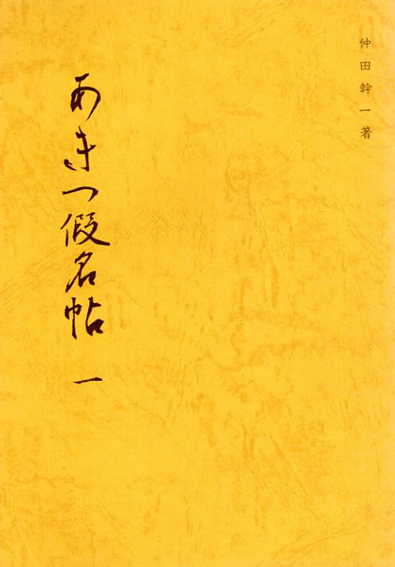 仲田幹一著
あきつ假名帖 一